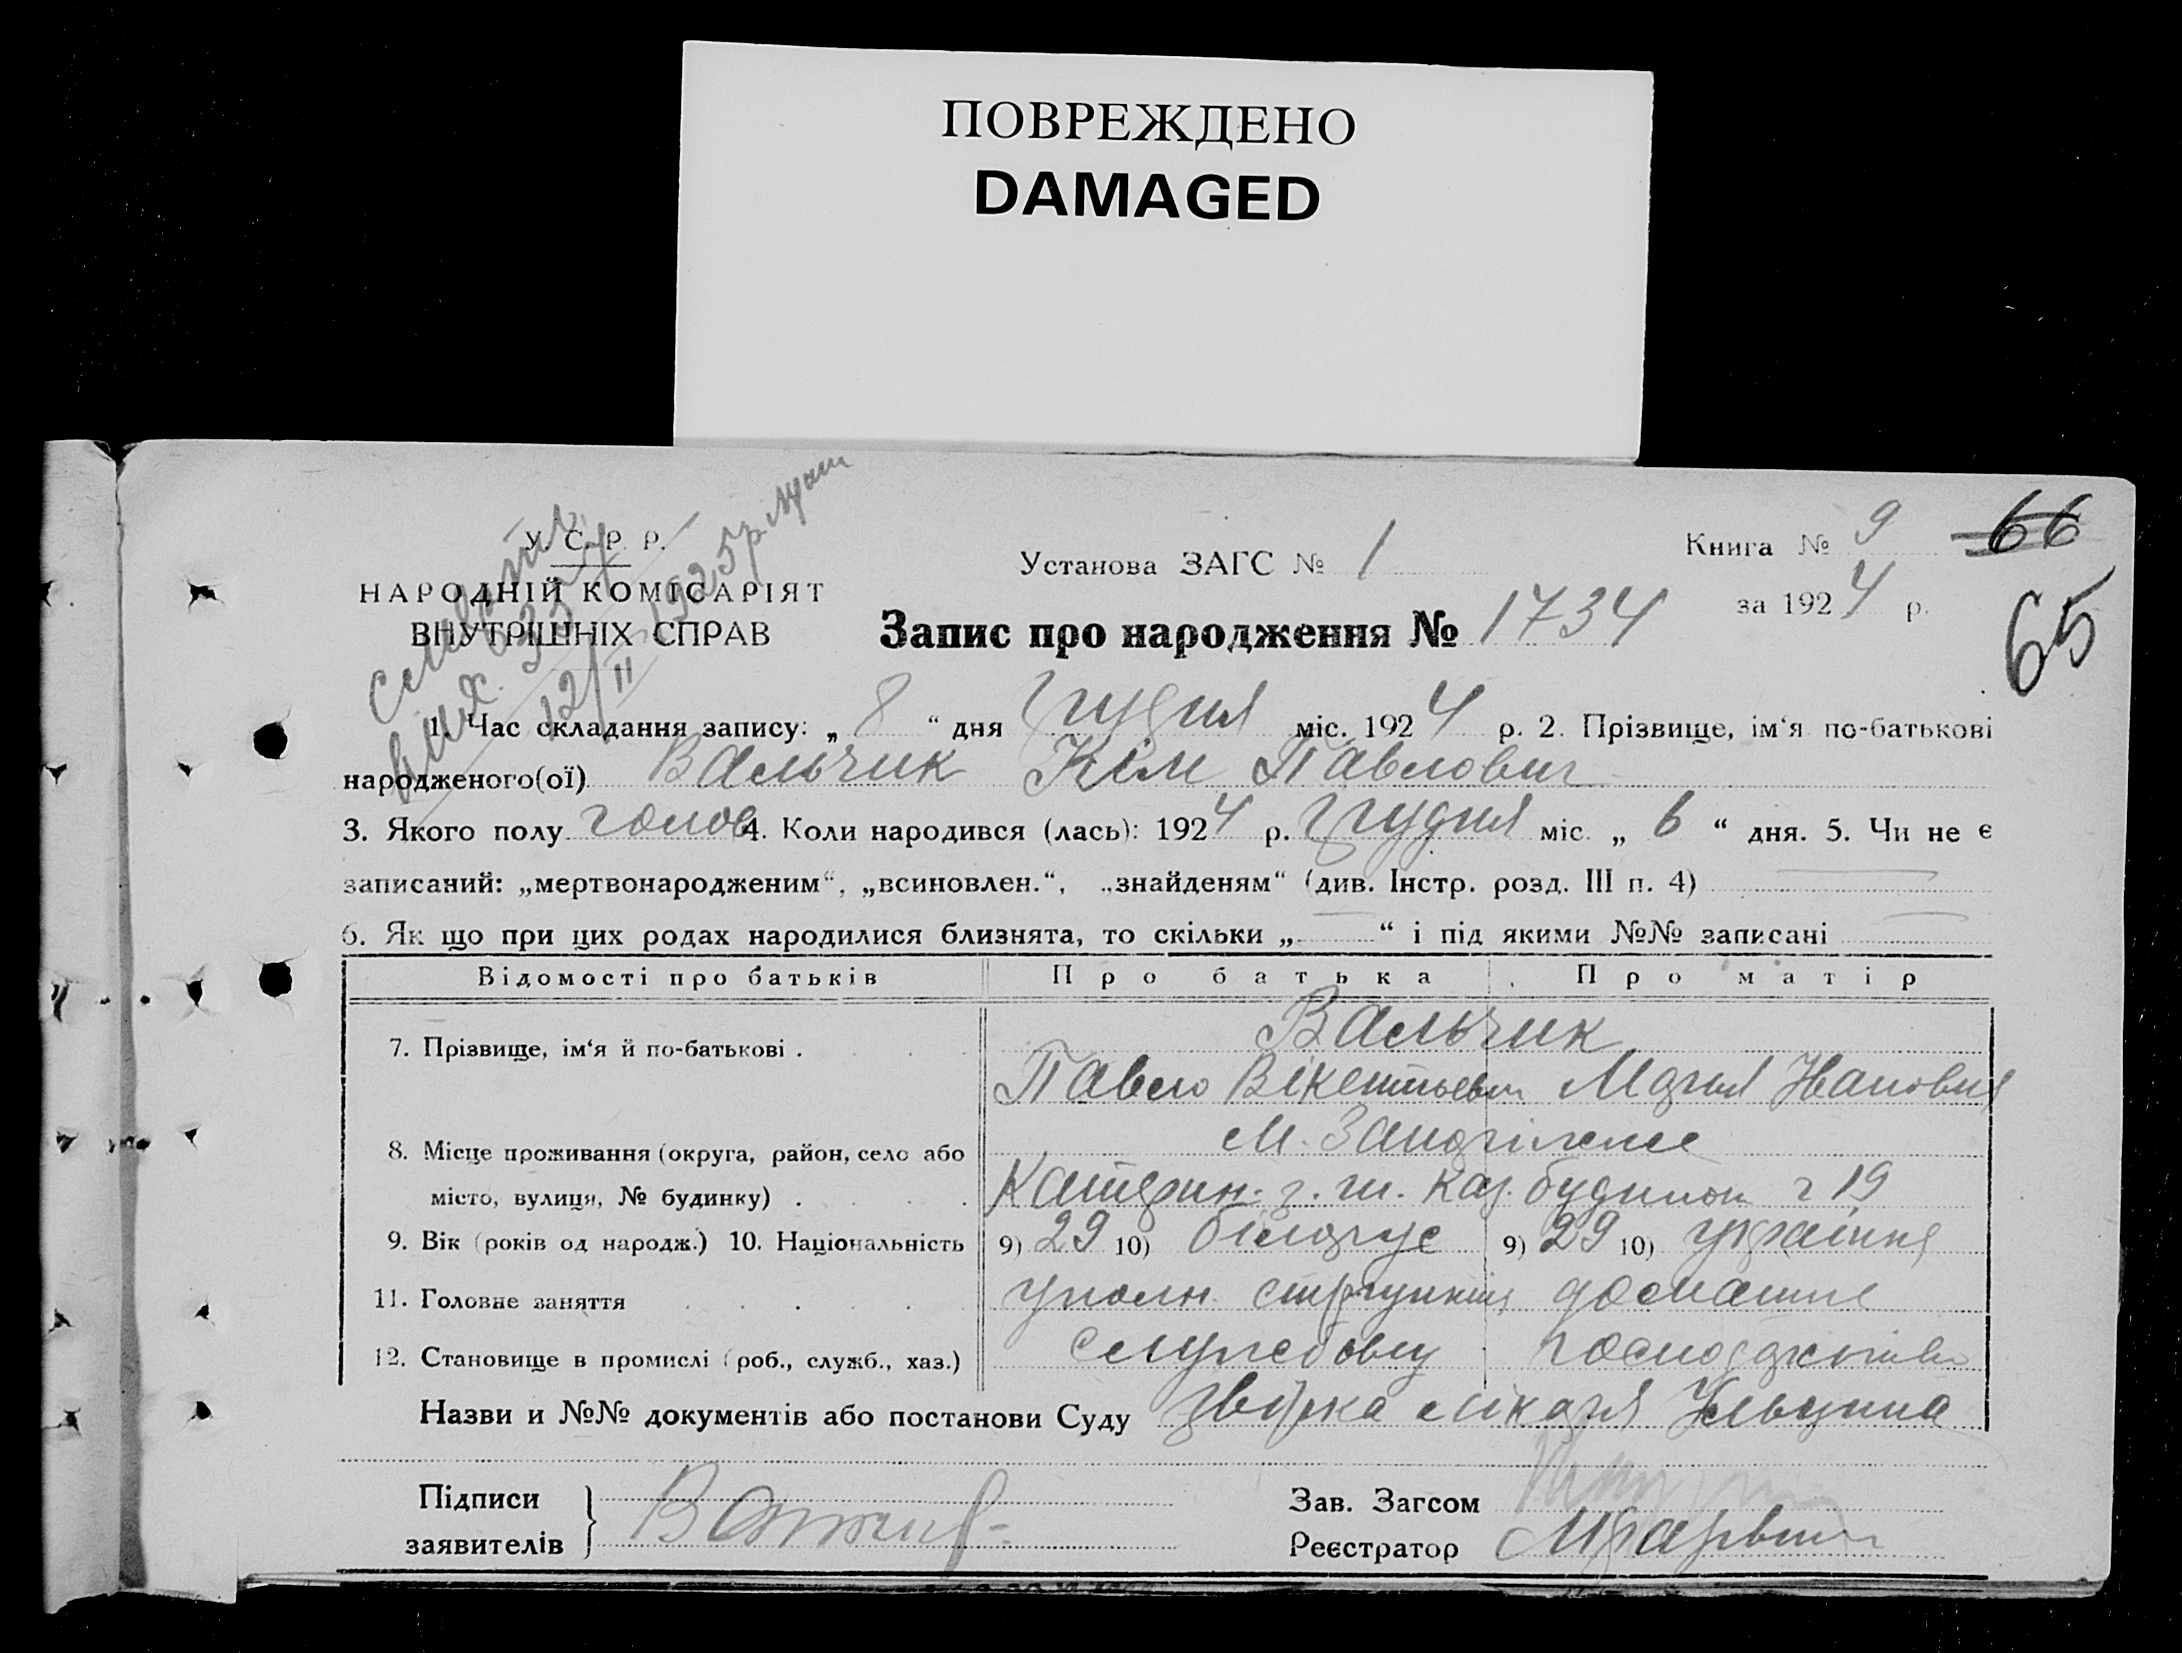 ПОВРЕЖДЕНО
DAMAGED
У. С. Р. Р.
НАРОДНІЙ КОМІСАРІЯТ
ВНУТРІШНІХ СПРАВ
12/II 1925 р.
Установа ЗАГС № 1
Книга № 9
66
за 1924 р.
65
Запис про народження № 1734
1. Час складання запису: „ 8 “ дня Грудня міс. 1924 р. 2. Прізвище, ім‘я по-батькові
народженого(ої) Вальчик Кім Павлович
3. Якого полу голов 4. Коли народився (лась): 1924 р. Грудня міс. „ 6 “ дня. 5. Чи не є
записаний: „мертвонародженим“, „всиновлен.“, „знайденям“ (див. Інстр. розд. III п. 4)
6. Як що при цих родах народилися близнята, то скільки „ — “ і під якими №№ записані —
Відомості про батьків Про батька Про матір
7. Прізвище, ім‘я й по-батькові . Вальчик
Павло Вікентьевич Марія Івановня
8. Місце проживання (округа, район, село або м. Запоріжже
місто, вулиця, № будинку) . Катерин. з. ш. каз. будинок 19
9. Вік (років од народж.) 10. Національність 9) 29 10) білорус 9) 29 10) україн
11. Головне заняття уполн. домашнє
12. Становище в промислі (роб., служб., хаз.) службовец господарство
Назви и №№ документів або постанови Суду лікаря
Підписи
заявителів
Зав. Загсом
Реєстратор